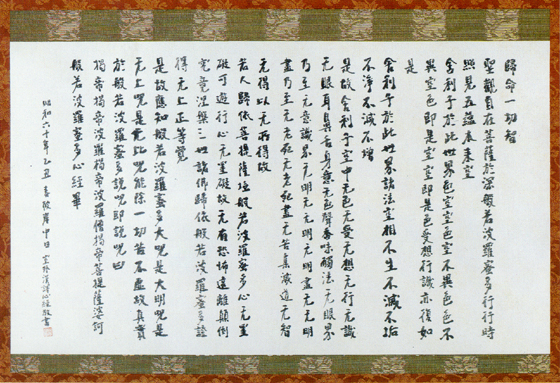 歸命一切智
聖觀自在菩薩於深般若波羅蜜多行行時
照見五蘊虚
舍利子於此世界色空空色色不異空
異空色即是空空即是色受想行識亦復如
是
舍利子於此世界諸法空相不生不滅不垢
不淨不減不增
是故舍利子空中无色无受无想无行无識
无眼耳鼻舌身意无色聲香味觸法无眼界
乃至无意識界无明无无明无明盡无无明
盡乃至无老死无老死盡无苦集滅道无智
无得以无所得故
若人歸依菩提薩埵般若波羅蜜多心无罣
礙可遊行心无罣礙故无有恐怖遠離顛倒
究竟涅槃三世諸佛歸依般若波羅蜜多證
得无上正等覺
是故應知般若波羅蜜多大呪是大明呪是
无上呪是无比呪能除一切苦不虚故真實
於般若波羅蜜多說呪即說呪曰
揭帝揭帝波羅揭帝波羅僧揭帝菩提薩婆訶
般若波羅蜜多心經畢
昭和六十年乙丑春彼岸中日